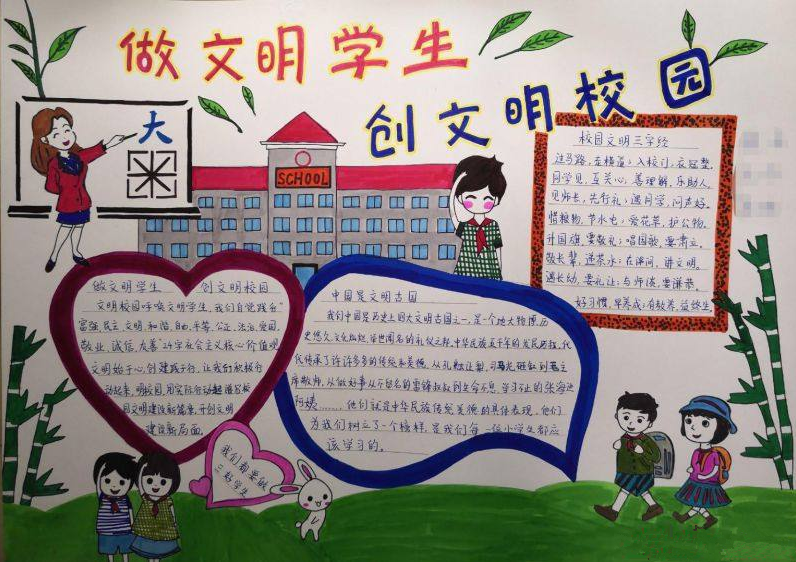 做文明学生
创文明校园
大
SCHOOL
校园文明三字经
过马路，走横道；入校门，衣冠整。
同学见，互关心，善理解，乐助人。
见师长，先行礼；遇同学，问声好。
惜粮物，节水电；爱花草，护公物。
升国旗，要敬礼；唱国歌，要肃立。
敬长辈，递茶水；在课间，讲文明。
遇长幼，要礼让；与师谈，要谦恭。
好习惯，早养成；有教养，益终生。
做文明学生 创文明校园
文明校园呼唤文明学生，我们自觉践行“
富强、民主、文明、和谐、自由、平等、公正、法治、爱国、
敬业、诚信、友善”24字社会主义核心价值观
文明始于心，创建践于行，让我们积极行
动起来，明校园，用实际行动
园文明建设新篇章，开创文明
建设新局面。
中国是文明古国
我们中国是历史上四大文明古国之一，是一个地大物博、历
史悠久、文化灿烂、举世闻名的礼仪之邦，中华民族五千年的发展历程，代
代传承了许许多多的传统和美德。从孔融让梨，司马光砸缸到
敬师，从做好事从不留名的雷锋叔叔到生命不息，学习不止的张海迪
阿姨………，他们就是中华民族传统美德的具体表现，他们
为我们树立了一个榜样，是我们每一位小学生都应
该学习的。
我们都要做
三好学生